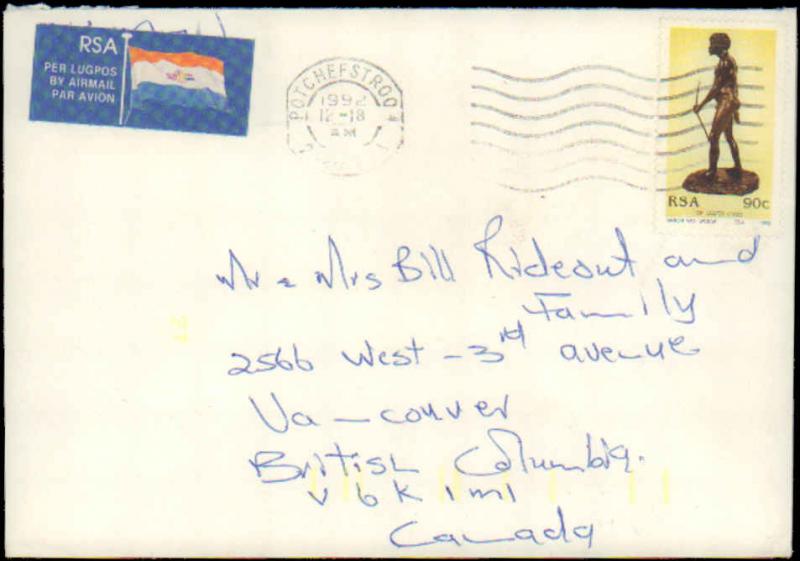 RSA
PER LUGPOS
BY AIRMAIL
PAR AVION
POTCHEFSTROO
1992
12-18
AM
RSA 90c
Mr & Mrs Bill Rideout and
Family
2566 West - 3rd avenue
Va-couver
British Columbia.
V6K 1M1
Canada